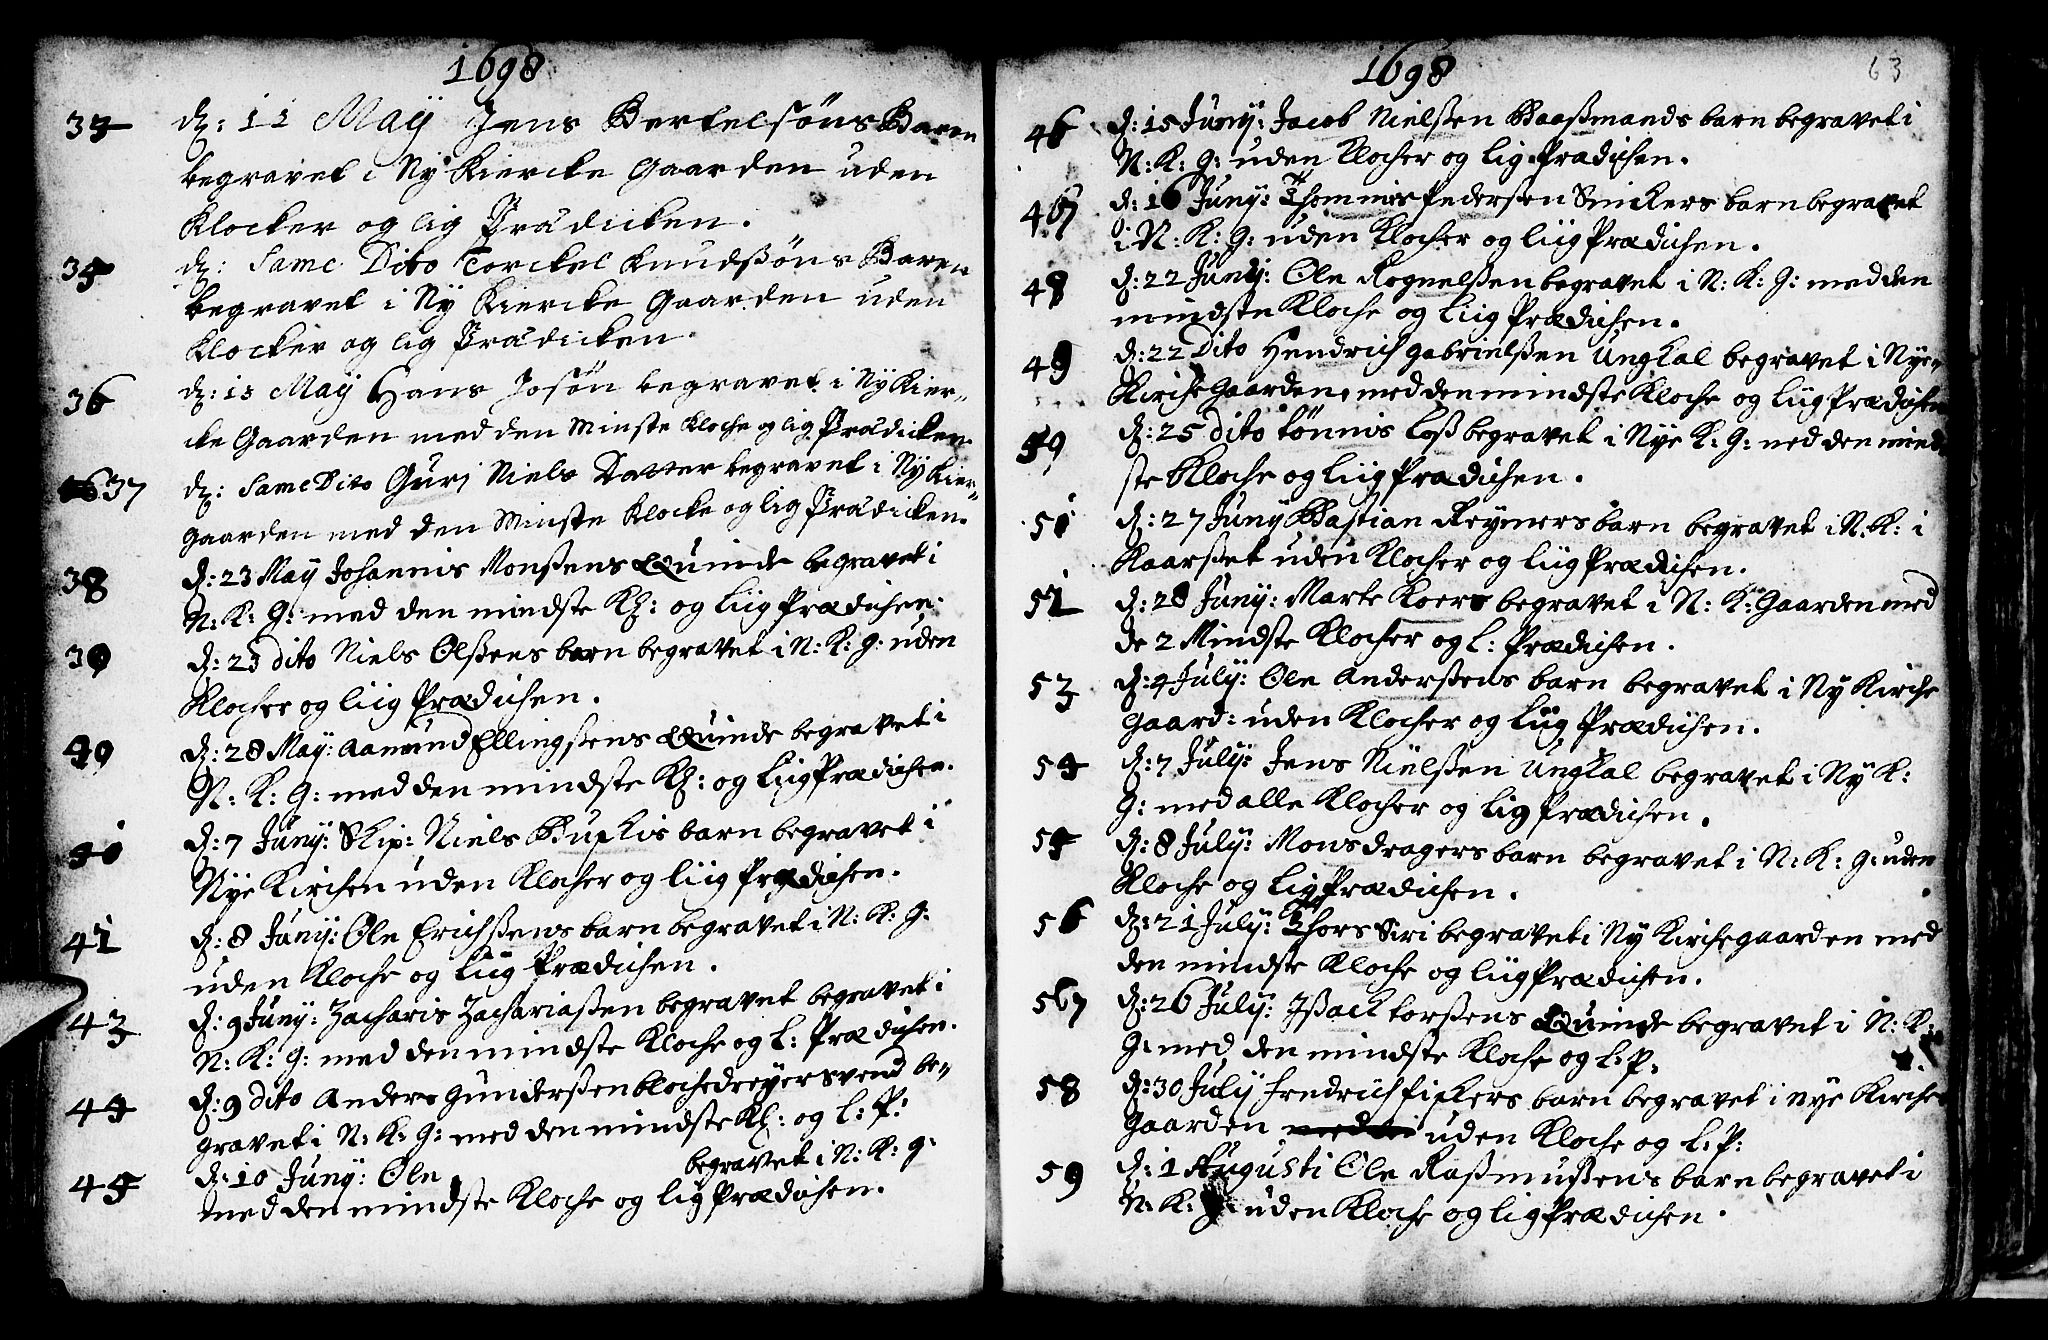 1698
33 d: 11 Maÿ Jens Bertelsöns Baren
begravet i Nÿ Kiercke Gaarden uden
Klocker og lig Prædicken.
34 d: Same Dito Torckel Knudßöns Baren
begravet i Nÿ Kiercke Gaarden uden
Klocker og lig Prædicken.
36 d: 13 Maÿ Hans Josön begravet i Nÿ Kier-
cke Gaarden med den Minste Kloche og lig Prædicken.
37 d: Same Dito Guri Niels Datter begravet i Nÿ Kier-
gaarden med den Minste Klocke og lig Prædicken.
38 d: 23 Maÿ Johannis Monßens Quinde begravet i
N: K: G: med den mindste Kl: og Liig Prædichen.
39 d: 23 dito Niels Olßens barn begravet i N: K: G: uden
Klocher og liig Prædichen.
40 d: 28 Maÿ: Aamund Ellingßens Quinde begravet i
N: K: G: med den mindste Kl: og Liig Prædichen.
41 d: 7 Junÿ: Skip: Niels barn begravet i
Nye Kirchen uden Klocher og liig Prædichen.
42 d: 8 Junÿ: Ole Erichßens barn begravet i N: K: G:
uden Kloche og Liig Prædichen.
43 d: 9 Junÿ: Zacharis Zachariaßen begravet begravet i
N: K: G: med den mindste Kloche og L: Prædichen.
44 d: 9 dito Anders Gunderßen blochedreyersvend be-
gravet i N: K: G: med den mindste Kl: og L: P:
45 d: 10 Junÿ: Ole begravet i N: K: G:
med den mindste Kloche og lig Prædichen.
1698 63
46 d: 15 Junÿ: Jacob Nielßen Baaßmands barn begravet i
N: K: G: uden Klocher og Lig Prædichen.
47 d: 16 Junÿ: Thommis Pederßen Snikers barn begravet
i N: K: G: uden Klocher og liig Prædichen.
48 d: 22 Junÿ: Ole Rognelßen begravet i N: K: G: med den
mindste Kloche og Liig Prædichen.
49 d: 22 Dito Hendrich Gabrielßen Ungkal begravet i Nye-
Kirche Gaarden, med den mindste Kloche og Liig Prædichen
50 d: 25 dito Tönnis Loß begravet i Nye K: G: med den mind-
ste Kloche og Liig Prædichen.
51 d: 27 Junÿ Bastian Reymers barn begravet i N: K: i
Kaarßet uden Klocher og Liig Prædichen.
52 d: 28 Junÿ: Marte Koers begravet i N: K: Gaarden med
de 2 Mindste Klocher og L: Prædichen.
53 d: 4 Julÿ: Ole Anderßens barn begravet i Nÿ Kirche
Gaard: uden Klocher og Liig Prædichen.
54 d: 7 Julÿ: Jens Nielßen Ungkal begravet i Nÿ K:
G: med alle Klocher og Lig Prædichen.
55 d: 8 Julÿ: Mons dragers barn begravet i N: K: G: uden
Kloche og Lig Prædichen.
56 d: 21 Julÿ: Thors Siri begravet i Nÿ Kirchegaarden med
den mindste Kloche og liig Prædichen.
57 d: 26 Julÿ: Ißack torßens Quinde begravet i N: K:
G: med den mindste Kloche og L: P:
58 d: 30 Julÿ Fredrich fikers barn begravet i nye Kirche
Gaarden uden Kloche og L: P:
59 d: 1 Augusti Ole Raßmußens barn begravet i
N: K: G: uden Kloche og lig Prædichen.